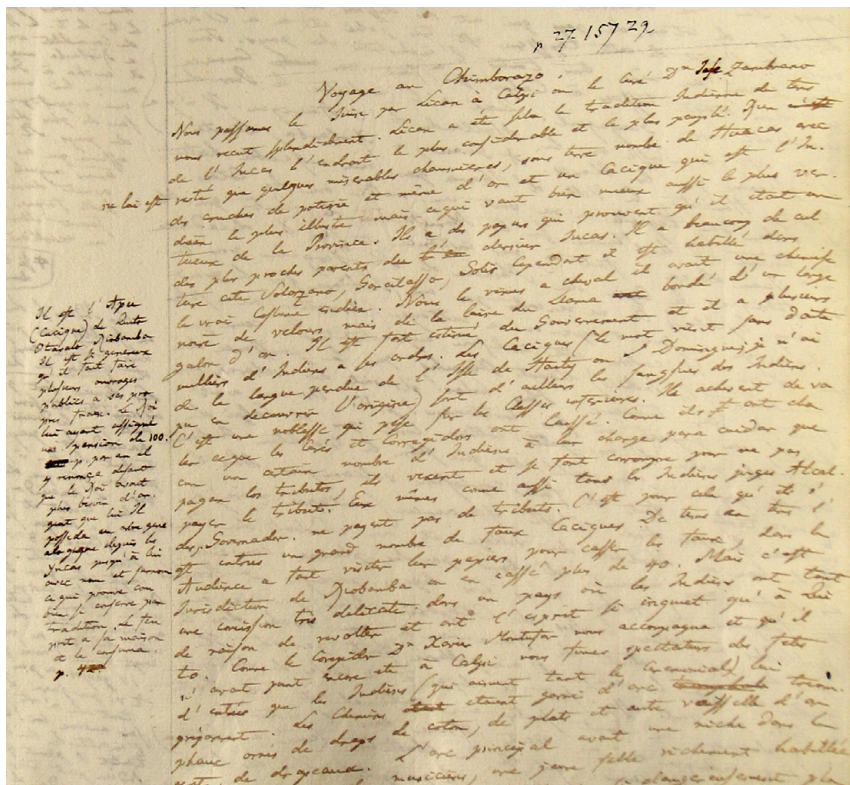 27. 157 29
Voyage au Chimborazo.
Nous passames le Juin par Lican à Calpi ou le Curé Dn Jose Zambrano
nous recut splendidement. Lican a été selon la tradition Indienne de tres
de l'Incas l'endroit le plus considerable et le plus peuplé. Rien
ne lui est resté que quelques miserables chaumieres, sous terre nombre de Huacas avec
des cruches de poterie et même d'or et un Cacique qui est l'In-
dien le plus illustre mais ce qui vaut bien mieux aussi le plus ver-
tueux de la Province. Il a des papiers qui prouvent qu'il etait un
des plus proches parents du dernier Incas. Il a beaucoup de cul
ture cite Solorzano, Garcilasso, Solis cependant il est habillé dans
le vrai costume Indien. Nous le vimes a cheval il avait une chemise
noire de velours mais de la laine du Llama bordé d'un large
galon d'or. Il est fort estimé du Gouvernement et il a plusieurs
milliers d'Indiens a ses ordres. Les Caciques (le mot vient sans doute
de la langue perdue de l'Isle de Hayty ou S Domingue, je n'ai
pu en decouvrir l'origine) sont d'ailleurs les sangsues des Indiens.
C'est une noblesse qui pese sur les Classes inferieures. Ils achevent de vo
ler ce que les Curés et Corregidors ont laissé. Come ils ont cha
cun un certain nombre d'Indiens à leur charge para cuidar que
pagan los tributos, ils vexent et se font corrompre pour ne pas
payer le tribut. Eux mêmes come aussi tous les Indiens juges Alcal-
des, Governador. ne payent pas de tributs. C'est pour cela qu'il s'
est introus un grand nombre de faux Caciques De tems en tems l'
Audience a fait visiter leur papiers pour casser les faux, dans la
Jurisdiction de Riobamba on en cassé plus de 40. Mais c'est
une comission tres delicate dans un pays où les Indiens ont tant
de raison de revolter et ont l'esprit si inquiet qu'à Qui
to. Come le Coregidor Dn Xavier Montufar nous accompagna et qu'il
n'avait point encore eté à Calpi nous fumes spectateurs des fetes
d'entrée que les Indiens (qui aiment tant le Ceremonial) lui
preparerent. Les Chemins etaient garni d'arc triom-
phaux ornés de draps de coton, de plats et autre vaisselle d'or
de drapeaux. L'arc principal avait une niche dans la
musiciens, une jeune fille richement habillée
Il est l'Apu
(Cacique) de Quito
Otavalo Riobamba
Il est si genereux
qu'il fait faire
plusieurs ouvrages
publics a ses pro
pres fraix. Le Roi
lui ayant assigné
une pension de 100.
p. par an il
y renonça disant
que le Roi avait
plus besoin d'ar-
gent que lui Il
possede un arbre gene
alogique depuis les
Yncas jusqu'à lui
avec nom et surnom
ce qui prouve com
bien se conserve par
tradition. Le feu
prit a sa maison
et le consuma.